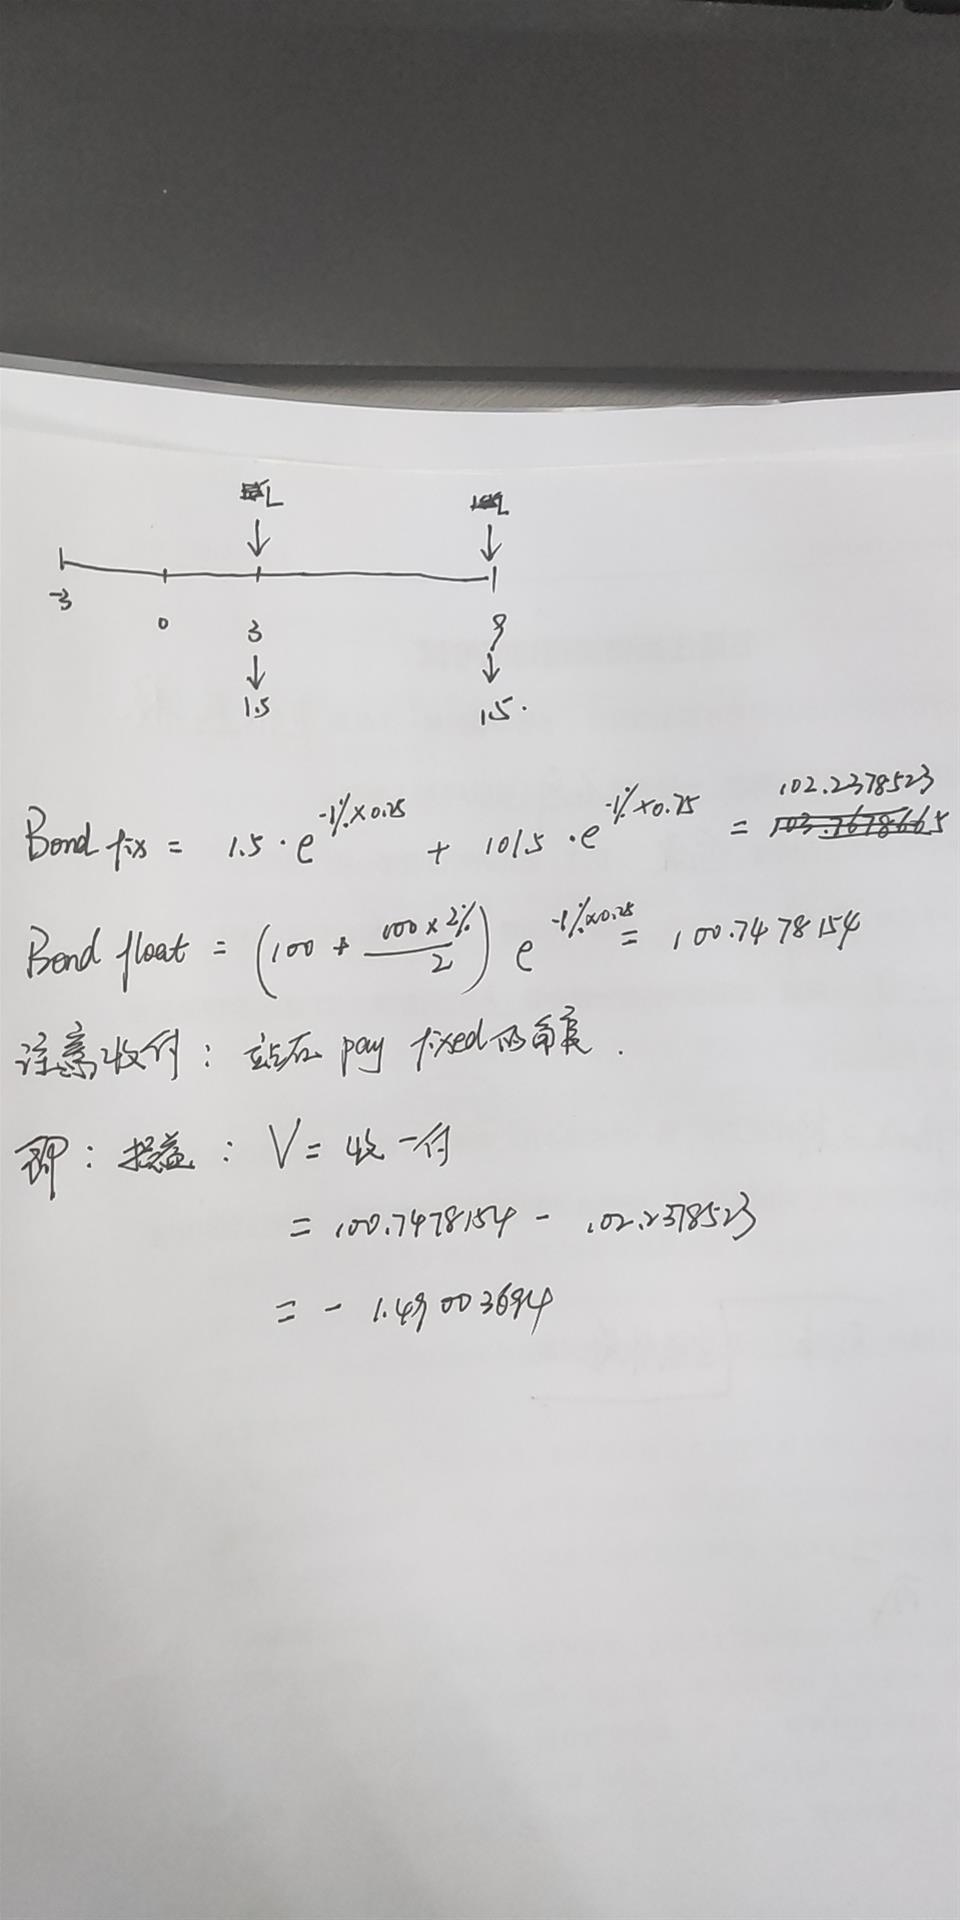 L L
-3 0 3 9
1.5 1.5.
Bond fix = 1.5 · e^{-1% × 0.25} + 101.5 · e^{-1% × 0.75} = 102.2378523
Bond float = (100 + \frac{100 × 2%}{2}) e^{-1% × 0.25} = 100.7478154
注意收付: 站在 pay fixed 的角度.
即: 损益: V = 收 - 付
= 100.7478154 - 102.2378523
= - 1.49003694